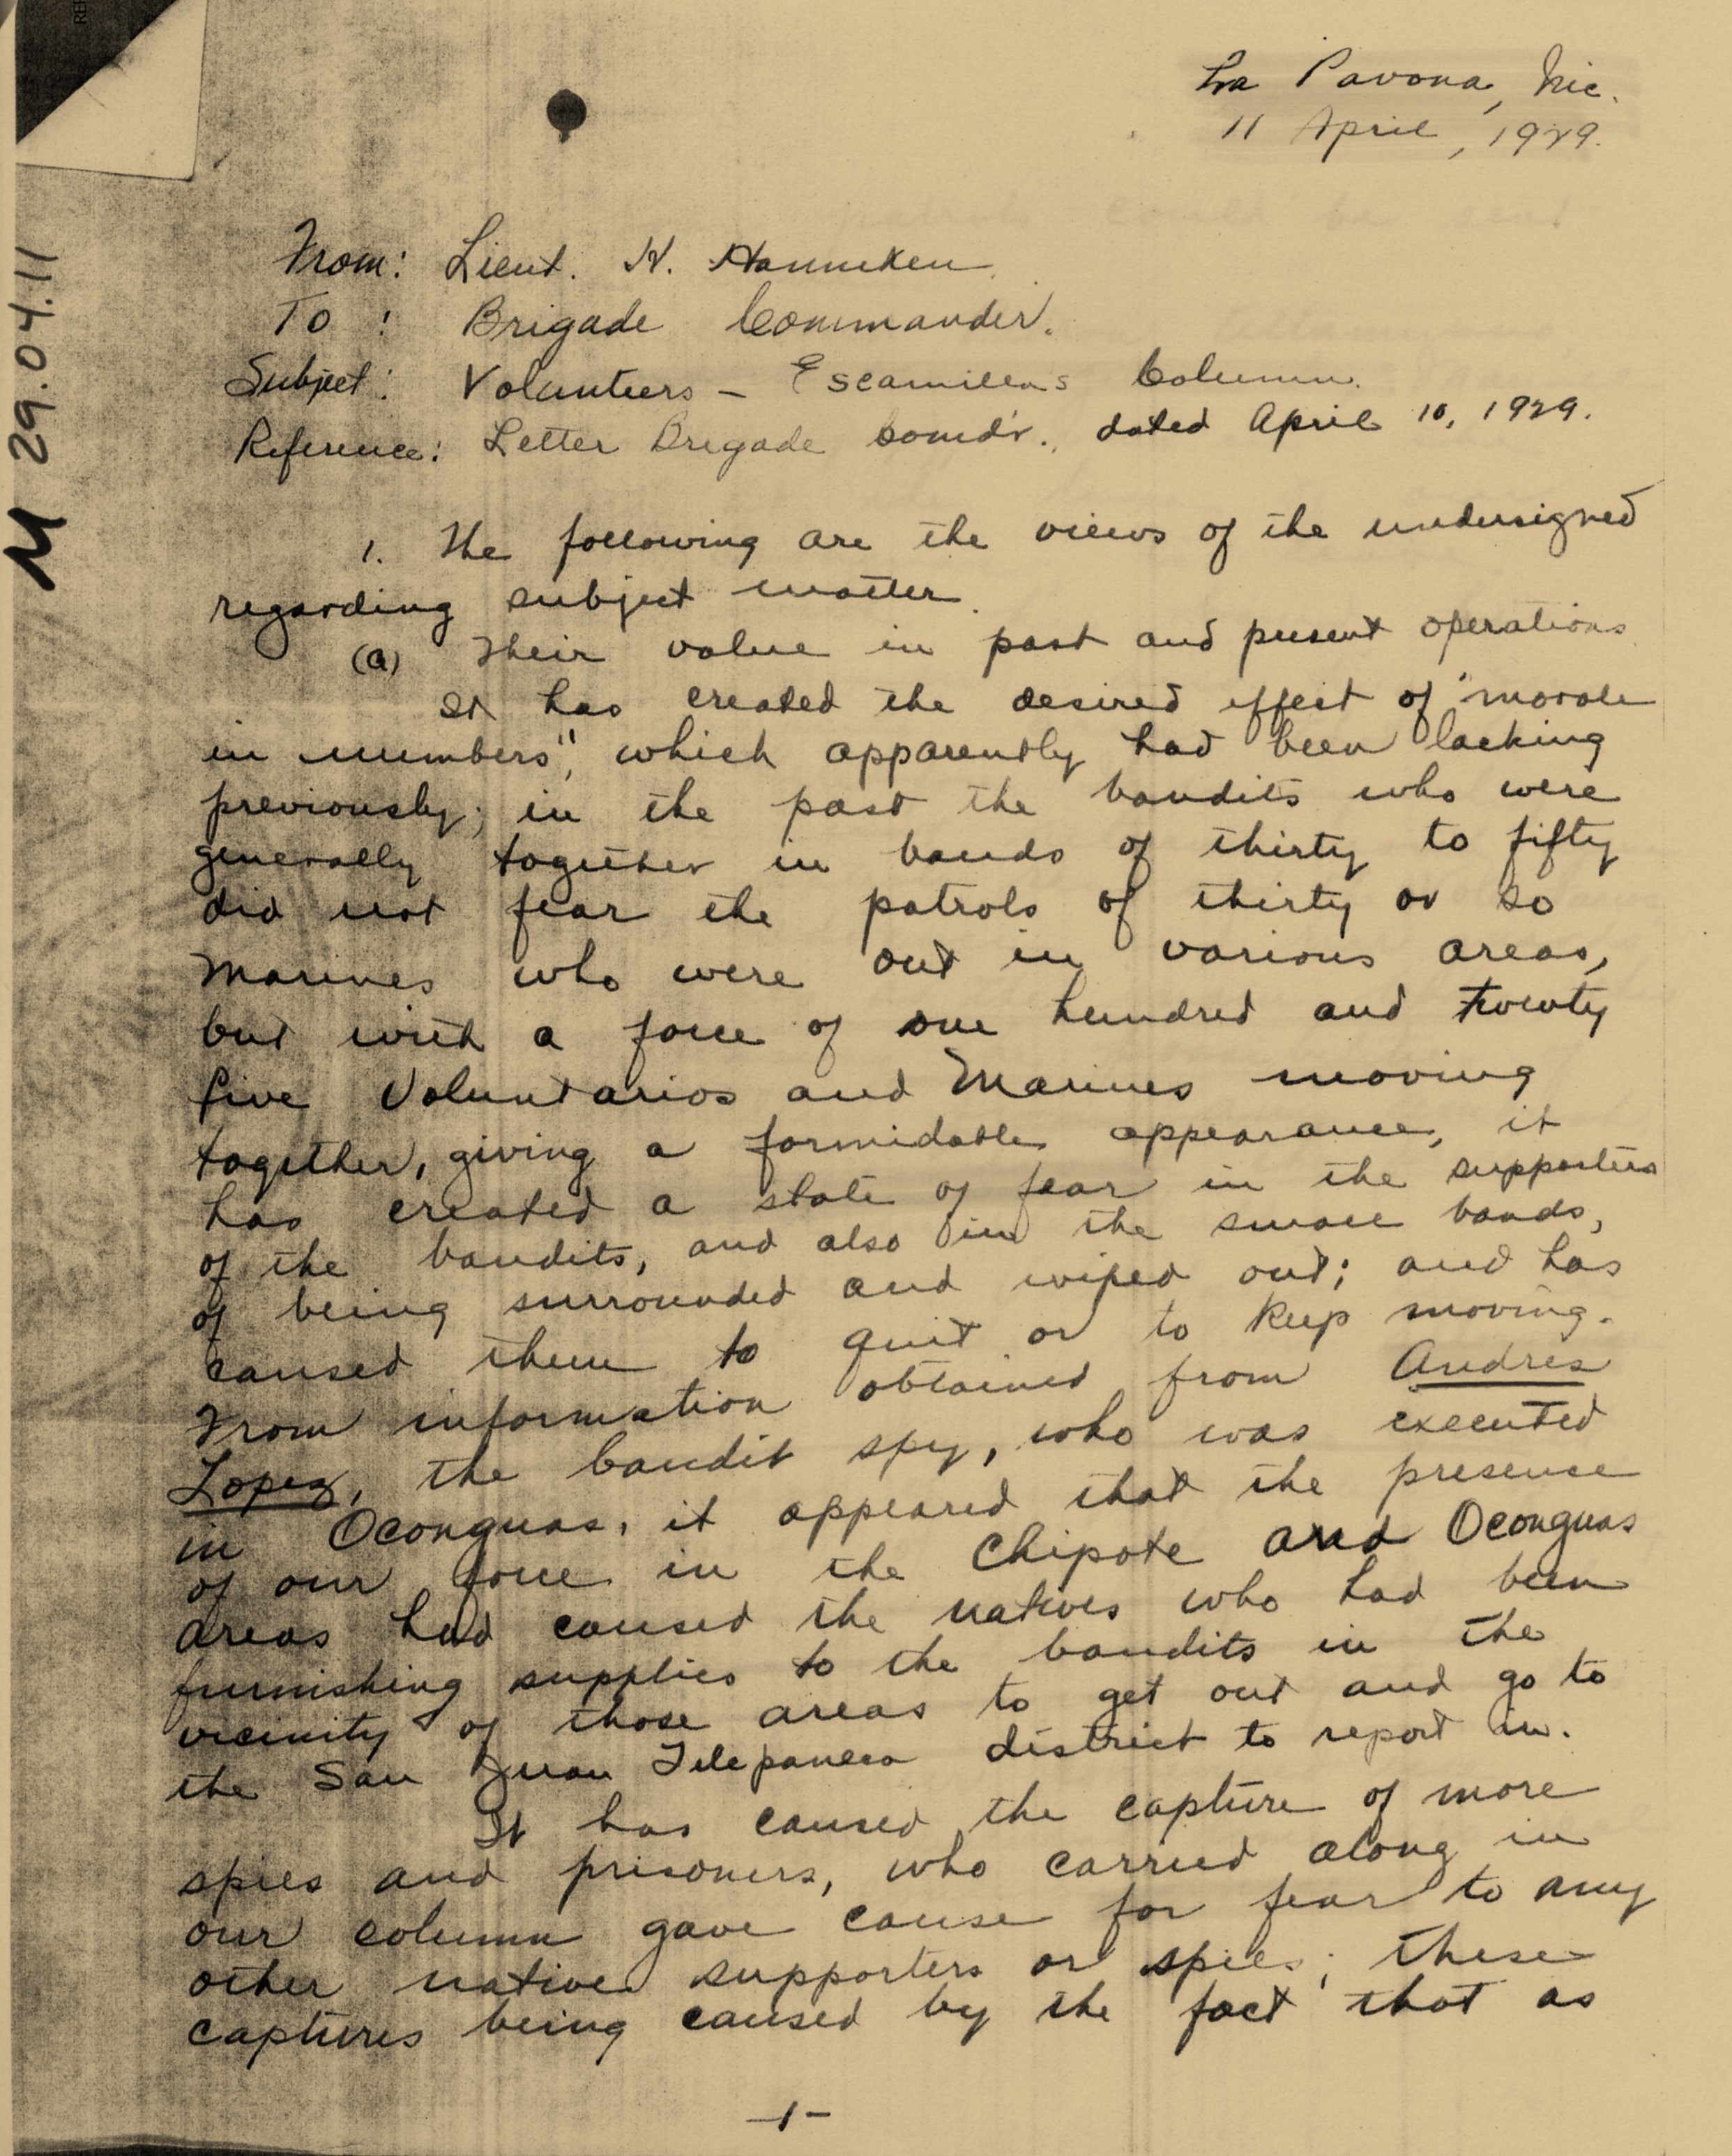 La Pavona, Nic.
11 April, 1929.
M 29.04.11
From: Lieut. H. Hanneken.
To : Brigade Commander.
Subject: Volunteers – Escamillas Column.
Reference: Letter Brigade Comdr., dated April 10, 1929.
1. The following are the views of the undersigned
regarding subject matter.
(a) Their value in past and present operations
It has created the desired effect of "morale
in numbers", which apparently had been lacking
previously; in the past the bandits who were
generally together in bands of thirty to fifty
did not fear the patrols of thirty or so
Marines who were out in various areas,
but with a force of one hundred and twenty
five Voluntarios and Marines moving
together, giving a formidable appearance, it
has created a state of fear in the supporters
of the bandits, and also in the small bands,
of being surrounded and wiped out; and has
caused them to quit or to keep moving.
From information obtained from Andres
Lopez, the bandit spy, who was executed
in Oconguas, it appeared that the presence
of our force in the Chipote and Oconguas
areas had caused the natives who had been
furnishing supplies to the bandits in the
vicinity of those areas to get out and go to
the San Juan Telepaneca district to report in.
It has caused the capture of more
spies and prisoners, who carried along in
our column gave cause for fear to any
other native supporters or spies; these
captures being caused by the fact that as
-1-